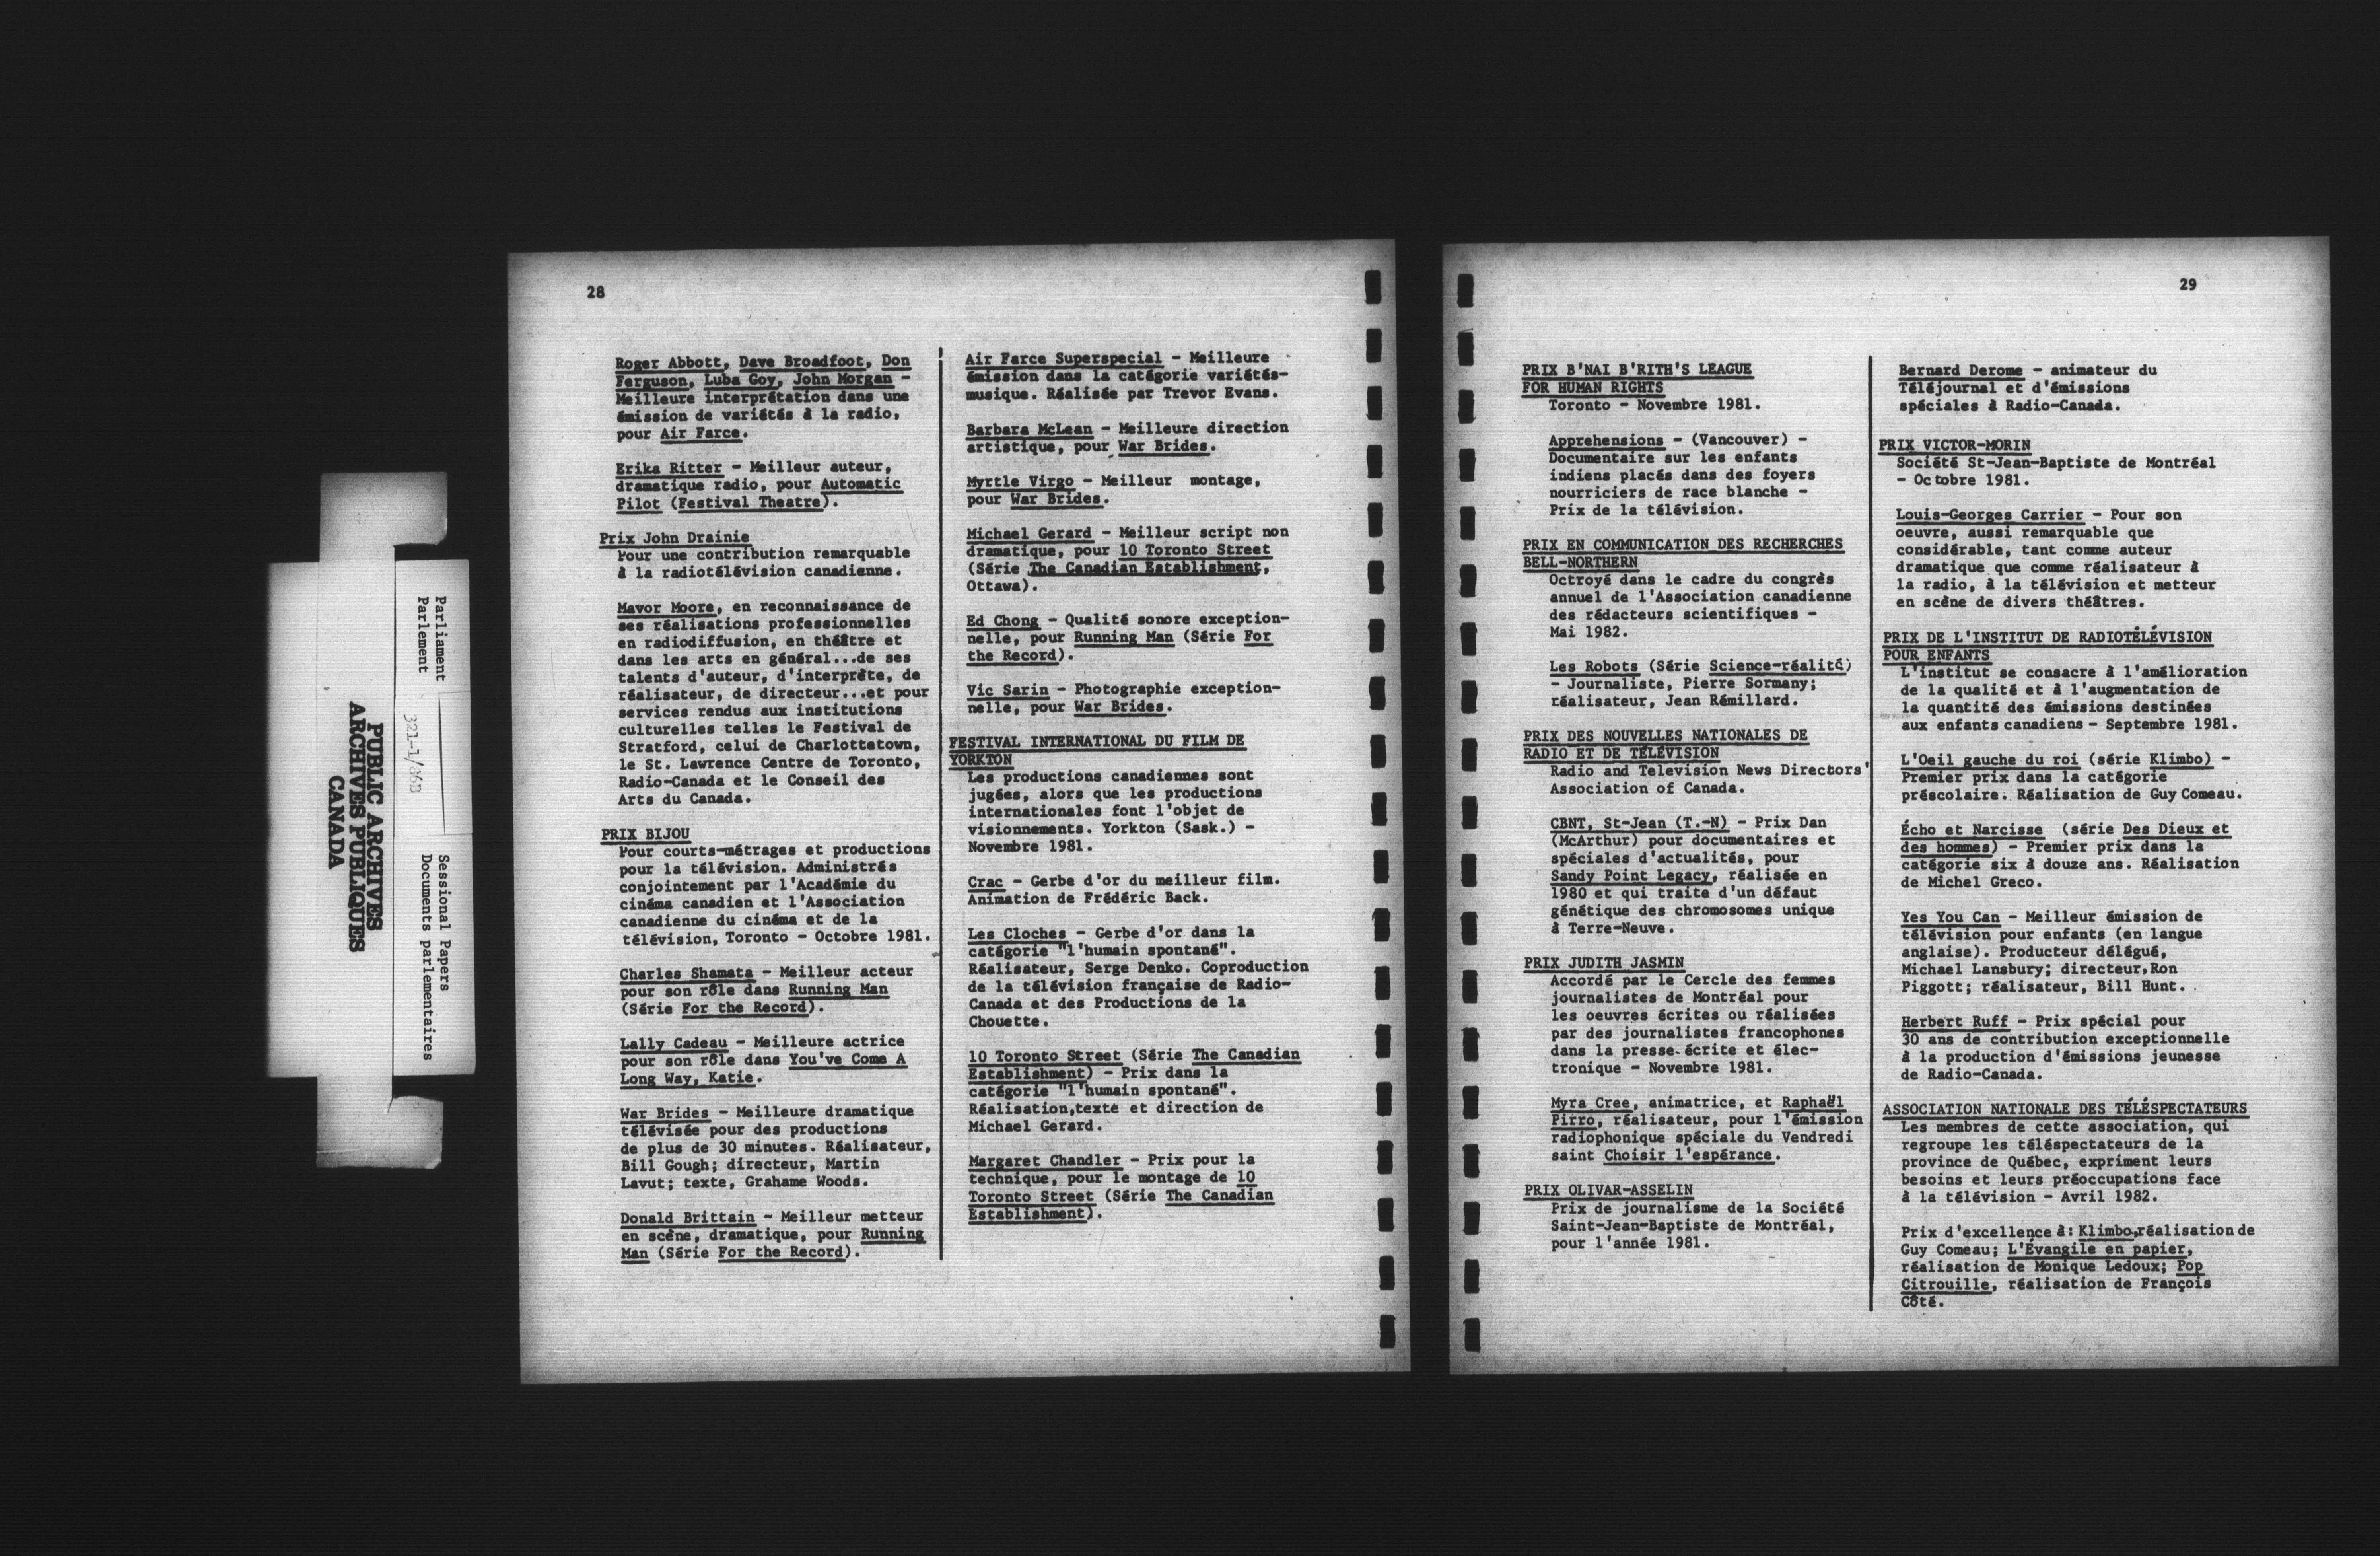 Parliament
Parlement
321-1/86B
Sessional Papers
Documents parlementaires
PUBLIC ARCHIVES
ARCHIVES PUBLIQUES
CANADA
28
Roger Abbott, Dave Broadfoot, Don
Ferguson, Luba Goy, John Morgan -
Meilleure interprétation dans une
émission de variétés à la radio,
pour Air Farce.
Erika Ritter - Meilleur auteur,
dramatique radio, pour Automatic
Pilot (Festival Theatre).
Prix John Drainie
Pour une contribution remarquable
à la radiotélévision canadienne.
Mavor Moore, en reconnaissance de
ses réalisations professionnelles
en radiodiffusion, en théâtre et
dans les arts en général...de ses
talents d'auteur, d'interprète, de
réalisateur, de directeur...et pour
services rendus aux institutions
culturelles telles le Festival de
Stratford, celui de Charlottetown,
le St. Lawrence Centre de Toronto,
Radio-Canada et le Conseil des
Arts du Canada.
PRIX BIJOU
Pour courts-métrages et productions
pour la télévision. Administrés
conjointement par l'Académie du
cinéma canadien et l'Association
canadienne du cinéma et de la
télévision, Toronto - Octobre 1981.
Charles Shamata - Meilleur acteur
pour son rôle dans Running Man
(Série For the Record).
Lally Cadeau - Meilleure actrice
pour son rôle dans You've Come A
Long Way, Katie.
War Brides - Meilleure dramatique
télévisée pour des productions
de plus de 30 minutes. Réalisateur,
Bill Gough; directeur, Martin
Lavut; texte, Grahame Woods.
Donald Brittain - Meilleur metteur
en scène, dramatique, pour Running
Man (Série For the Record).
Air Farce Superspecial - Meilleure
émission dans la catégorie variétés-
musique. Réalisée par Trevor Evans.
Barbara McLean - Meilleure direction
artistique, pour War Brides.
Myrtle Virgo - Meilleur montage,
pour War Brides.
Michael Gerard - Meilleur script non
dramatique, pour 10 Toronto Street
(Série The Canadian Establishment,
Ottawa).
Ed Chong - Qualité sonore exception-
nelle, pour Running Man (Série For
the Record).
Vic Sarin - Photographie exception-
nelle, pour War Brides.
FESTIVAL INTERNATIONAL DU FILM DE
YORKTON
Les productions canadiennes sont
jugées, alors que les productions
internationales font l'objet de
visionnements. Yorkton (Sask.) -
Novembre 1981.
Crac - Gerbe d'or du meilleur film.
Animation de Frédéric Back.
Les Cloches - Gerbe d'or dans la
catégorie "l'humain spontané".
Réalisateur, Serge Denko. Coproduction
de la télévision française de Radio-
Canada et des Productions de la
Chouette.
10 Toronto Street (Série The Canadian
Establishment) - Prix dans la
catégorie "l'humain spontané".
Réalisation,texte et direction de
Michael Gerard.
Margaret Chandler - Prix pour la
technique, pour le montage de 10
Toronto Street (Série The Canadian
Establishment).
29
PRIX B'NAI B'RITH'S LEAGUE
FOR HUMAN RIGHTS
Toronto - Novembre 1981.
Apprehensions - (Vancouver) -
Documentaire sur les enfants
indiens placés dans des foyers
nourriciers de race blanche -
Prix de la télévision.
PRIX EN COMMUNICATION DES RECHERCHES
BELL-NORTHERN
Octroyé dans le cadre du congrès
annuel de l'Association canadienne
des rédacteurs scientifiques -
Mai 1982.
Les Robots (Série Science-réalité)
- Journaliste, Pierre Sormany;
réalisateur, Jean Rémillard.
PRIX DES NOUVELLES NATIONALES DE
RADIO ET DE TÉLÉVISION
Radio and Television News Directors'
Association of Canada.
CBNT, St-Jean (T.-N) - Prix Dan
(McArthur) pour documentaires et
spéciales d'actualités, pour
Sandy Point Legacy, réalisée en
1980 et qui traite d'un défaut
génétique des chromosomes unique
à Terre-Neuve.
PRIX JUDITH JASMIN
Accordé par le Cercle des femmes
journalistes de Montréal pour
les oeuvres écrites ou réalisées
par des journalistes francophones
dans la presse écrite et élec-
tronique - Novembre 1981.
Myra Cree, animatrice, et Raphaël
Pirro, réalisateur, pour l'émission
radiophonique spéciale du Vendredi
saint Choisir l'espérance.
PRIX OLIVAR-ASSELIN
Prix de journalisme de la Société
Saint-Jean-Baptiste de Montréal,
pour l'année 1981.
Bernard Derome - animateur du
Téléjournal et d'émissions
spéciales à Radio-Canada.
PRIX VICTOR-MORIN
Société St-Jean-Baptiste de Montréal
- Octobre 1981.
Louis-Georges Carrier - Pour son
oeuvre, aussi remarquable que
considérable, tant comme auteur
dramatique que comme réalisateur à
la radio, à la télévision et metteur
en scène de divers théâtres.
PRIX DE L'INSTITUT DE RADIOTÉLÉVISION
POUR ENFANTS
L'institut se consacre à l'amélioration
de la qualité et à l'augmentation de
la quantité des émissions destinées
aux enfants canadiens - Septembre 1981.
L'Oeil gauche du roi (série Klimbo) -
Premier prix dans la catégorie
préscolaire. Réalisation de Guy Comeau.
Écho et Narcisse (série Des Dieux et
des hommes) - Premier prix dans la
catégorie six à douze ans. Réalisation
de Michel Greco.
Yes You Can - Meilleur émission de
télévision pour enfants (en langue
anglaise). Producteur délégué,
Michael Lansbury; directeur,Ron
Piggott; réalisateur, Bill Hunt.
Herbert Ruff - Prix spécial pour
30 ans de contribution exceptionnelle
à la production d'émissions jeunesse
de Radio-Canada.
ASSOCIATION NATIONALE DES TÉLÉSPECTATEURS
Les membres de cette association, qui
regroupe les téléspectateurs de la
province de Québec, expriment leurs
besoins et leurs préoccupations face
à la télévision - Avril 1982.
Prix d'excellence à: Klimbo,réalisation de
Guy Comeau; L'Évangile en papier,
réalisation de Monique Ledoux; Pop
Citrouille, réalisation de François
Côté.